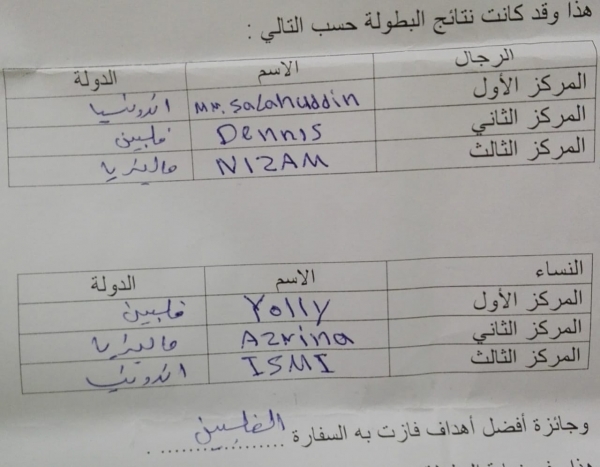 هذا وقد كانت نتائج البطولة حسب التالي :
الرجال الاسم الدولة
المركز الأول Mr. Salahuddin اندونيسيا
المركز الثاني Dennis فلبين
المركز الثالث NIZAM ماليزيا
النساء الاسم الدولة
المركز الأول Yolly فلبين
المركز الثاني Azrina ماليزيا
المركز الثالث ISMI اندونيسيا
وجائزة أفضل أهداف فازت به السفارة الفلبين .